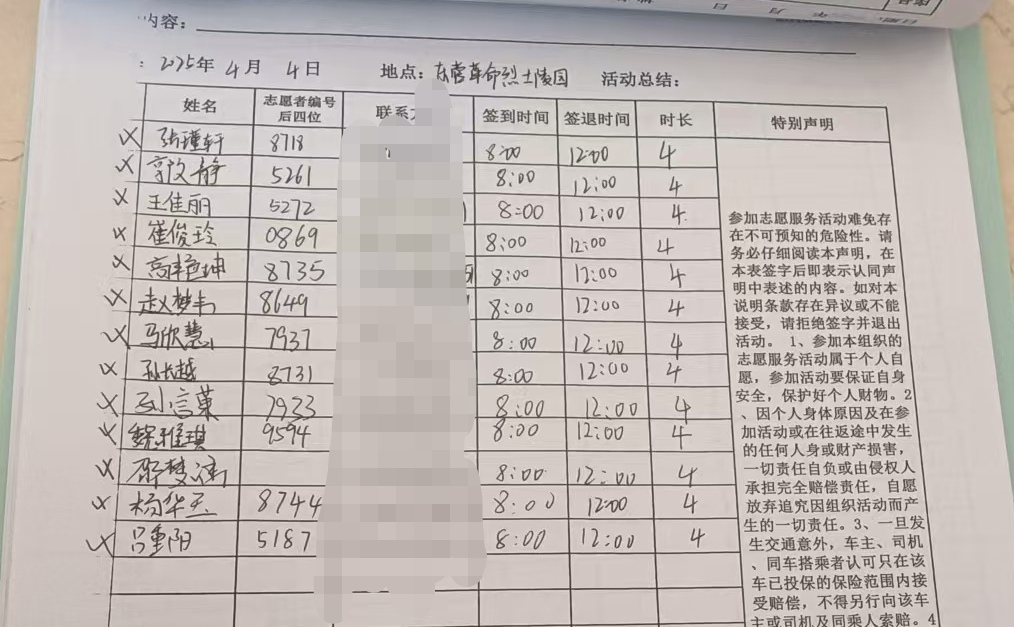 内容：
：2025年 4月 4日 地点：东营革命烈士陵园 活动总结：
姓名 志愿者编号后四位 联系 签到时间 签退时间 时长 特别声明
张瑾轩 8718 8:00 12:00 4
郭改静 5261 8:00 12:00 4
王佳丽 5272 8:00 12:00 4
崔俊玲 0869 8:00 12:00 4
8735 8:00 12:00 4
赵梦韦 8649 8:00 12:00 4
马欣慧 7937 8:00 12:00 4
孙长越 8731 8:00 12:00 4
刘言菓 7933 8:00 12:00 4
魏雅琪 9594 8:00 12:00 4
邵梦涵 8:00 12:00 4
杨华玉 8744 8:00 12:00 4
吕重阳 5187 8:00 12:00 4
参加志愿服务活动难免存
在不可预知的危险性。请
务必仔细阅读本声明，在
本表签字后即表示认同声
明中表述的内容。如对本
说明条款存在异议或不能
接受，请拒绝签字并退出
活动。 1、参加本组织的
志愿服务活动属于个人自
愿，参加活动要保证自身
安全，保护好个人财物。2
、因个人身体原因及在参
加活动或在往返途中发生
的任何人身或财产损害，
一切责任自负或由侵权人
承担完全赔偿责任，自愿
放弃追究因组织活动而产
生的一切责任。3、一旦发
生交通意外，车主、司机
、同车搭乘者认可只在该
车已投保的保险范围内接
受赔偿，不得另行向该车
主或司机及同乘人索赔。4